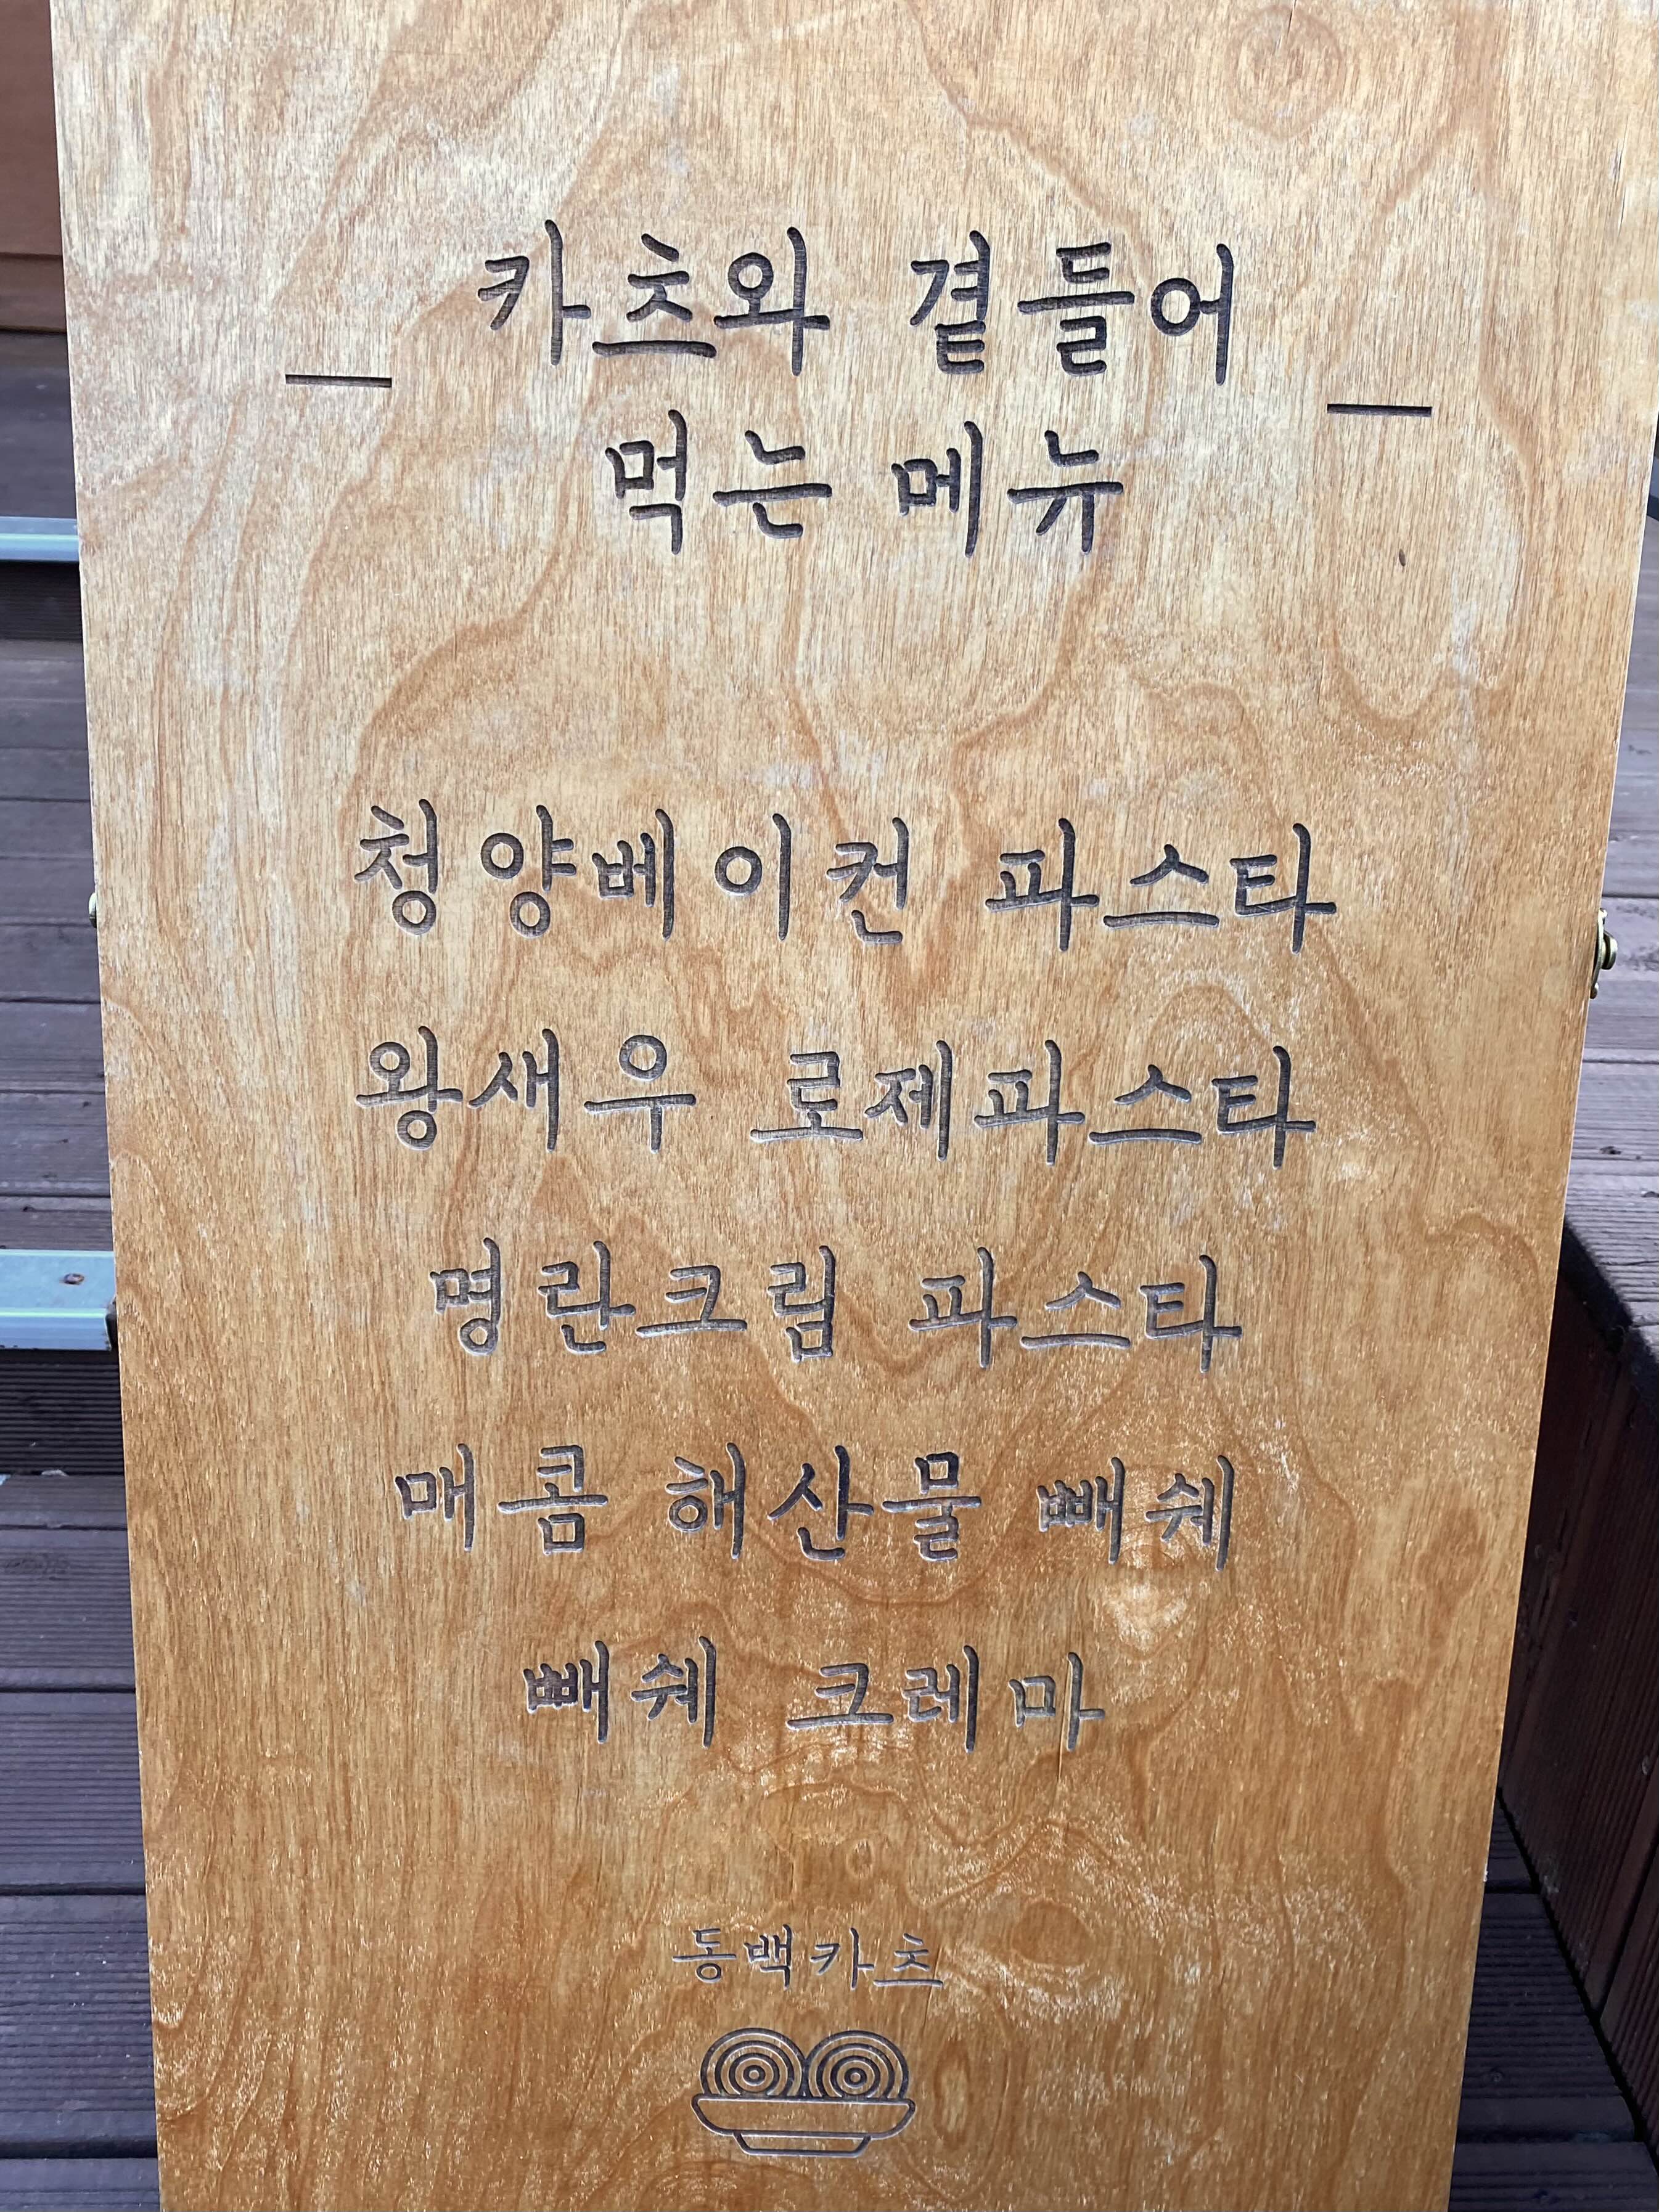 카츠와 곁들어
먹는 메뉴
청양베이컨 파스타
왕새우 로제파스타
명란크림 파스타
매콤 해산물 빼쉐
빼쉐 크레마
동백카츠